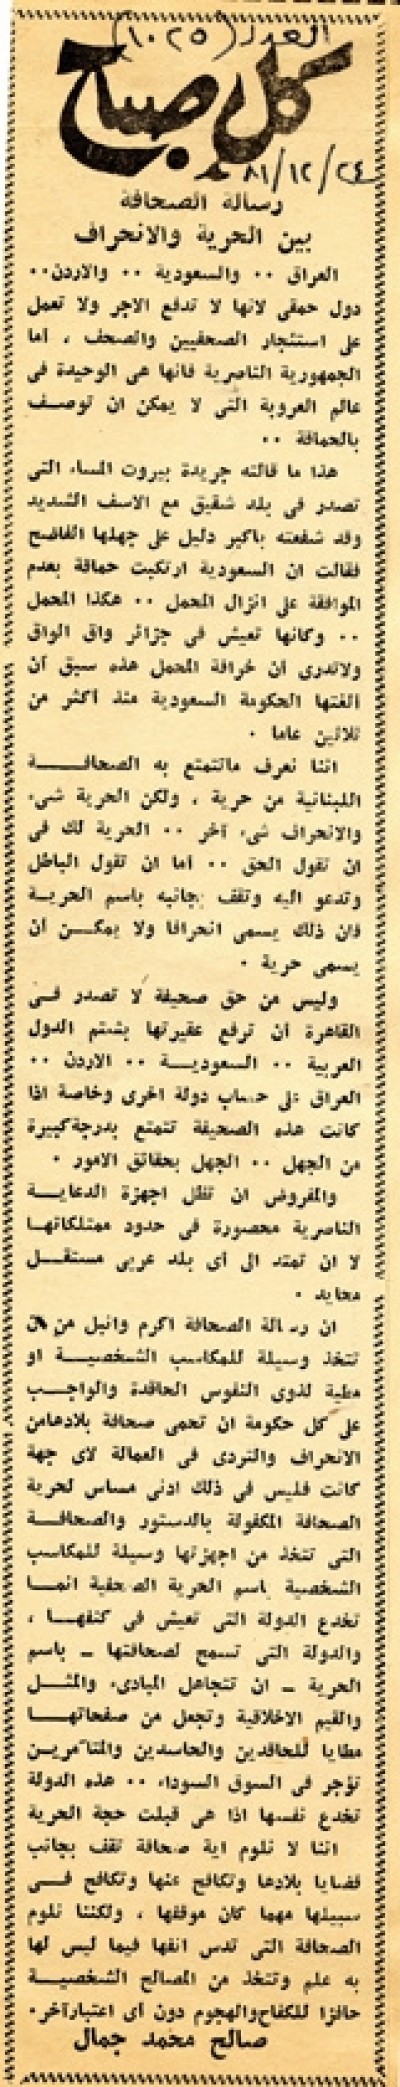 العدد (١٠٢٥)
كل صباح
٨١/١٢/٢٤
رسالة الصحافة
بين الحرية والانحراف
العراق ٠٠ والسعودية ٠٠ والاردن٠٠
دول حمقى لانها لا تدفع الاجر ولا تعمل
على استئجار الصحفيين والصحف ، اما
الجمهورية الناصرية فانها هى الوحيدة فى
عالم العروبة التى لا يمكن ان توصف
بالحماقة ٠٠
هذا ما قالته جريدة بيروت المساء التى
تصدر فى بلد شقيق مع الاسف الشديد
وقد شفعته باكبر دليل على جهلها الفاضح
فقالت ان السعودية ارتكبت حماقة بعدم
الموافقة على انزال المحمل ٠٠ هكذا المحمل
٠٠ وكانها تعيش فى جزائر واق الواق
ولاتدرى ان خرافة المحمل هذه سبق ان
ألغتها الحكومة السعودية منذ أكثر من
ثلاثين عاما ٠
اننا نعرف ماتتمتع به الصحافة
اللبنانية من حرية ، ولكن الحرية شىء
والانحراف شىء آخر ٠٠ الحرية لك فى
ان تقول الحق ٠٠ أما ان تقول الباطل
وتدعو اليه وتقف بجانبه باسم الحرية
فان ذلك يسمى انحرافا ولا يمكن أن
يسمى حرية ٠
وليس من حق صحيفة لا تصدر فى
القاهرة أن ترفع عقيرتها بشتم الدول
العربية ٠٠ السعودية ٠٠ الاردن ٠٠
العراق على حساب دولة اخرى وخاصة اذا
كانت هذه الصحيفة تتمتع بدرجة كبيرة
من الجهل ٠٠ الجهل بحقائق الامور ٠
والمفروض ان تظل اجهزة الدعاية
الناصرية محصورة فى حدود ممتلكاتها
لا ان تمتد الى أى بلد عربى مستقل
محايد ٠
ان رسالة الصحافة اكرم وانبل من ان
تتخذ وسيلة للمكاسب الشخصية او
مطية لذوى النفوس الحاقدة والواجب
على كل حكومة ان تحمى صحافة بلادهامن
الانحراف والتردى فى العمالة لاى جهة
كانت فليس فى ذلك ادنى مساس لحرية
الصحافة المكفولة بالدستور والصحافة
التى تتخذ من اجهزتها وسيلة للمكاسب
الشخصية باسم الحرية الصحفية انما
تخدع الدولة التى تعيش فى كنفها ،
والدولة التى تسمح لصحافتها - باسم
الحرية - ان تتجاهل المبادىء والمثل
والقيم الاخلاقية وتجعل من صفحاتها
مطايا للحاقدين والحاسدين والمتآمرين
تؤجر فى السوق السوداء ٠٠ هذه الدولة
تخدع نفسها اذا هى قبلت حجة الحرية
اننا لا نلوم اية صحافة تقف بجانب
قضايا بلادها وتكافح عنها وتكافح فى
سبيلها مهما كان موقفها ، ولكننا نلوم
الصحافة التى تدس انفها فيما ليس لها
به علم وتتخذ من المصالح الشخصية
حافزا للكفاح والهجوم دون أى اعتبارآخر٠
صالح محمد جمال